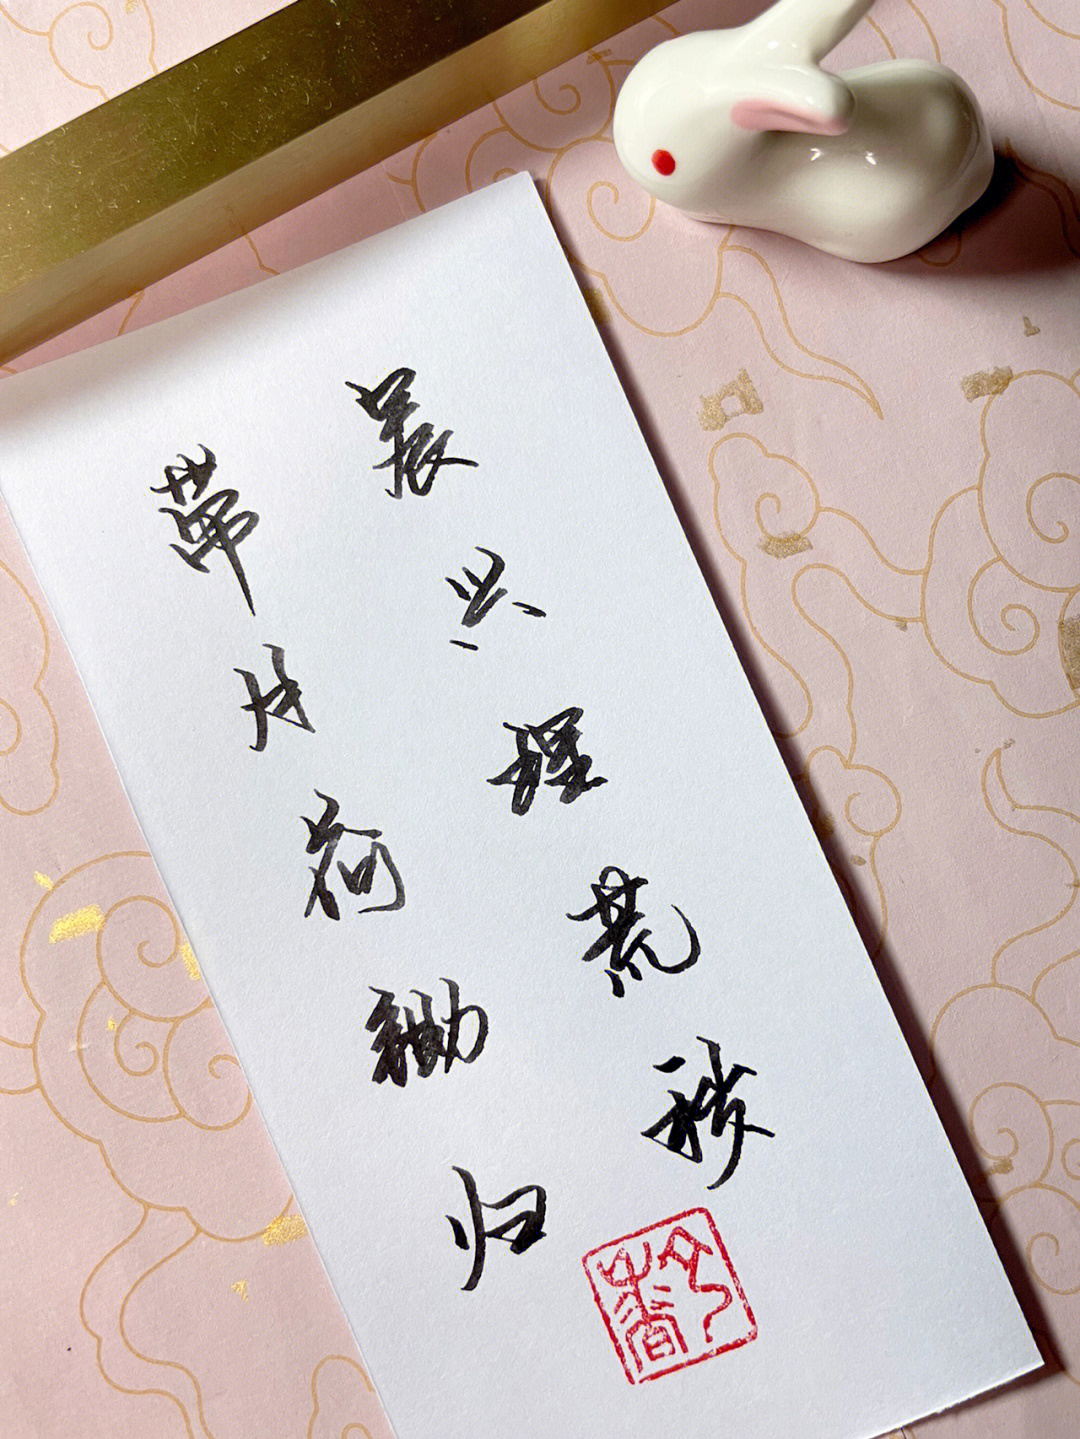 晨兴理荒秽
带月荷锄归